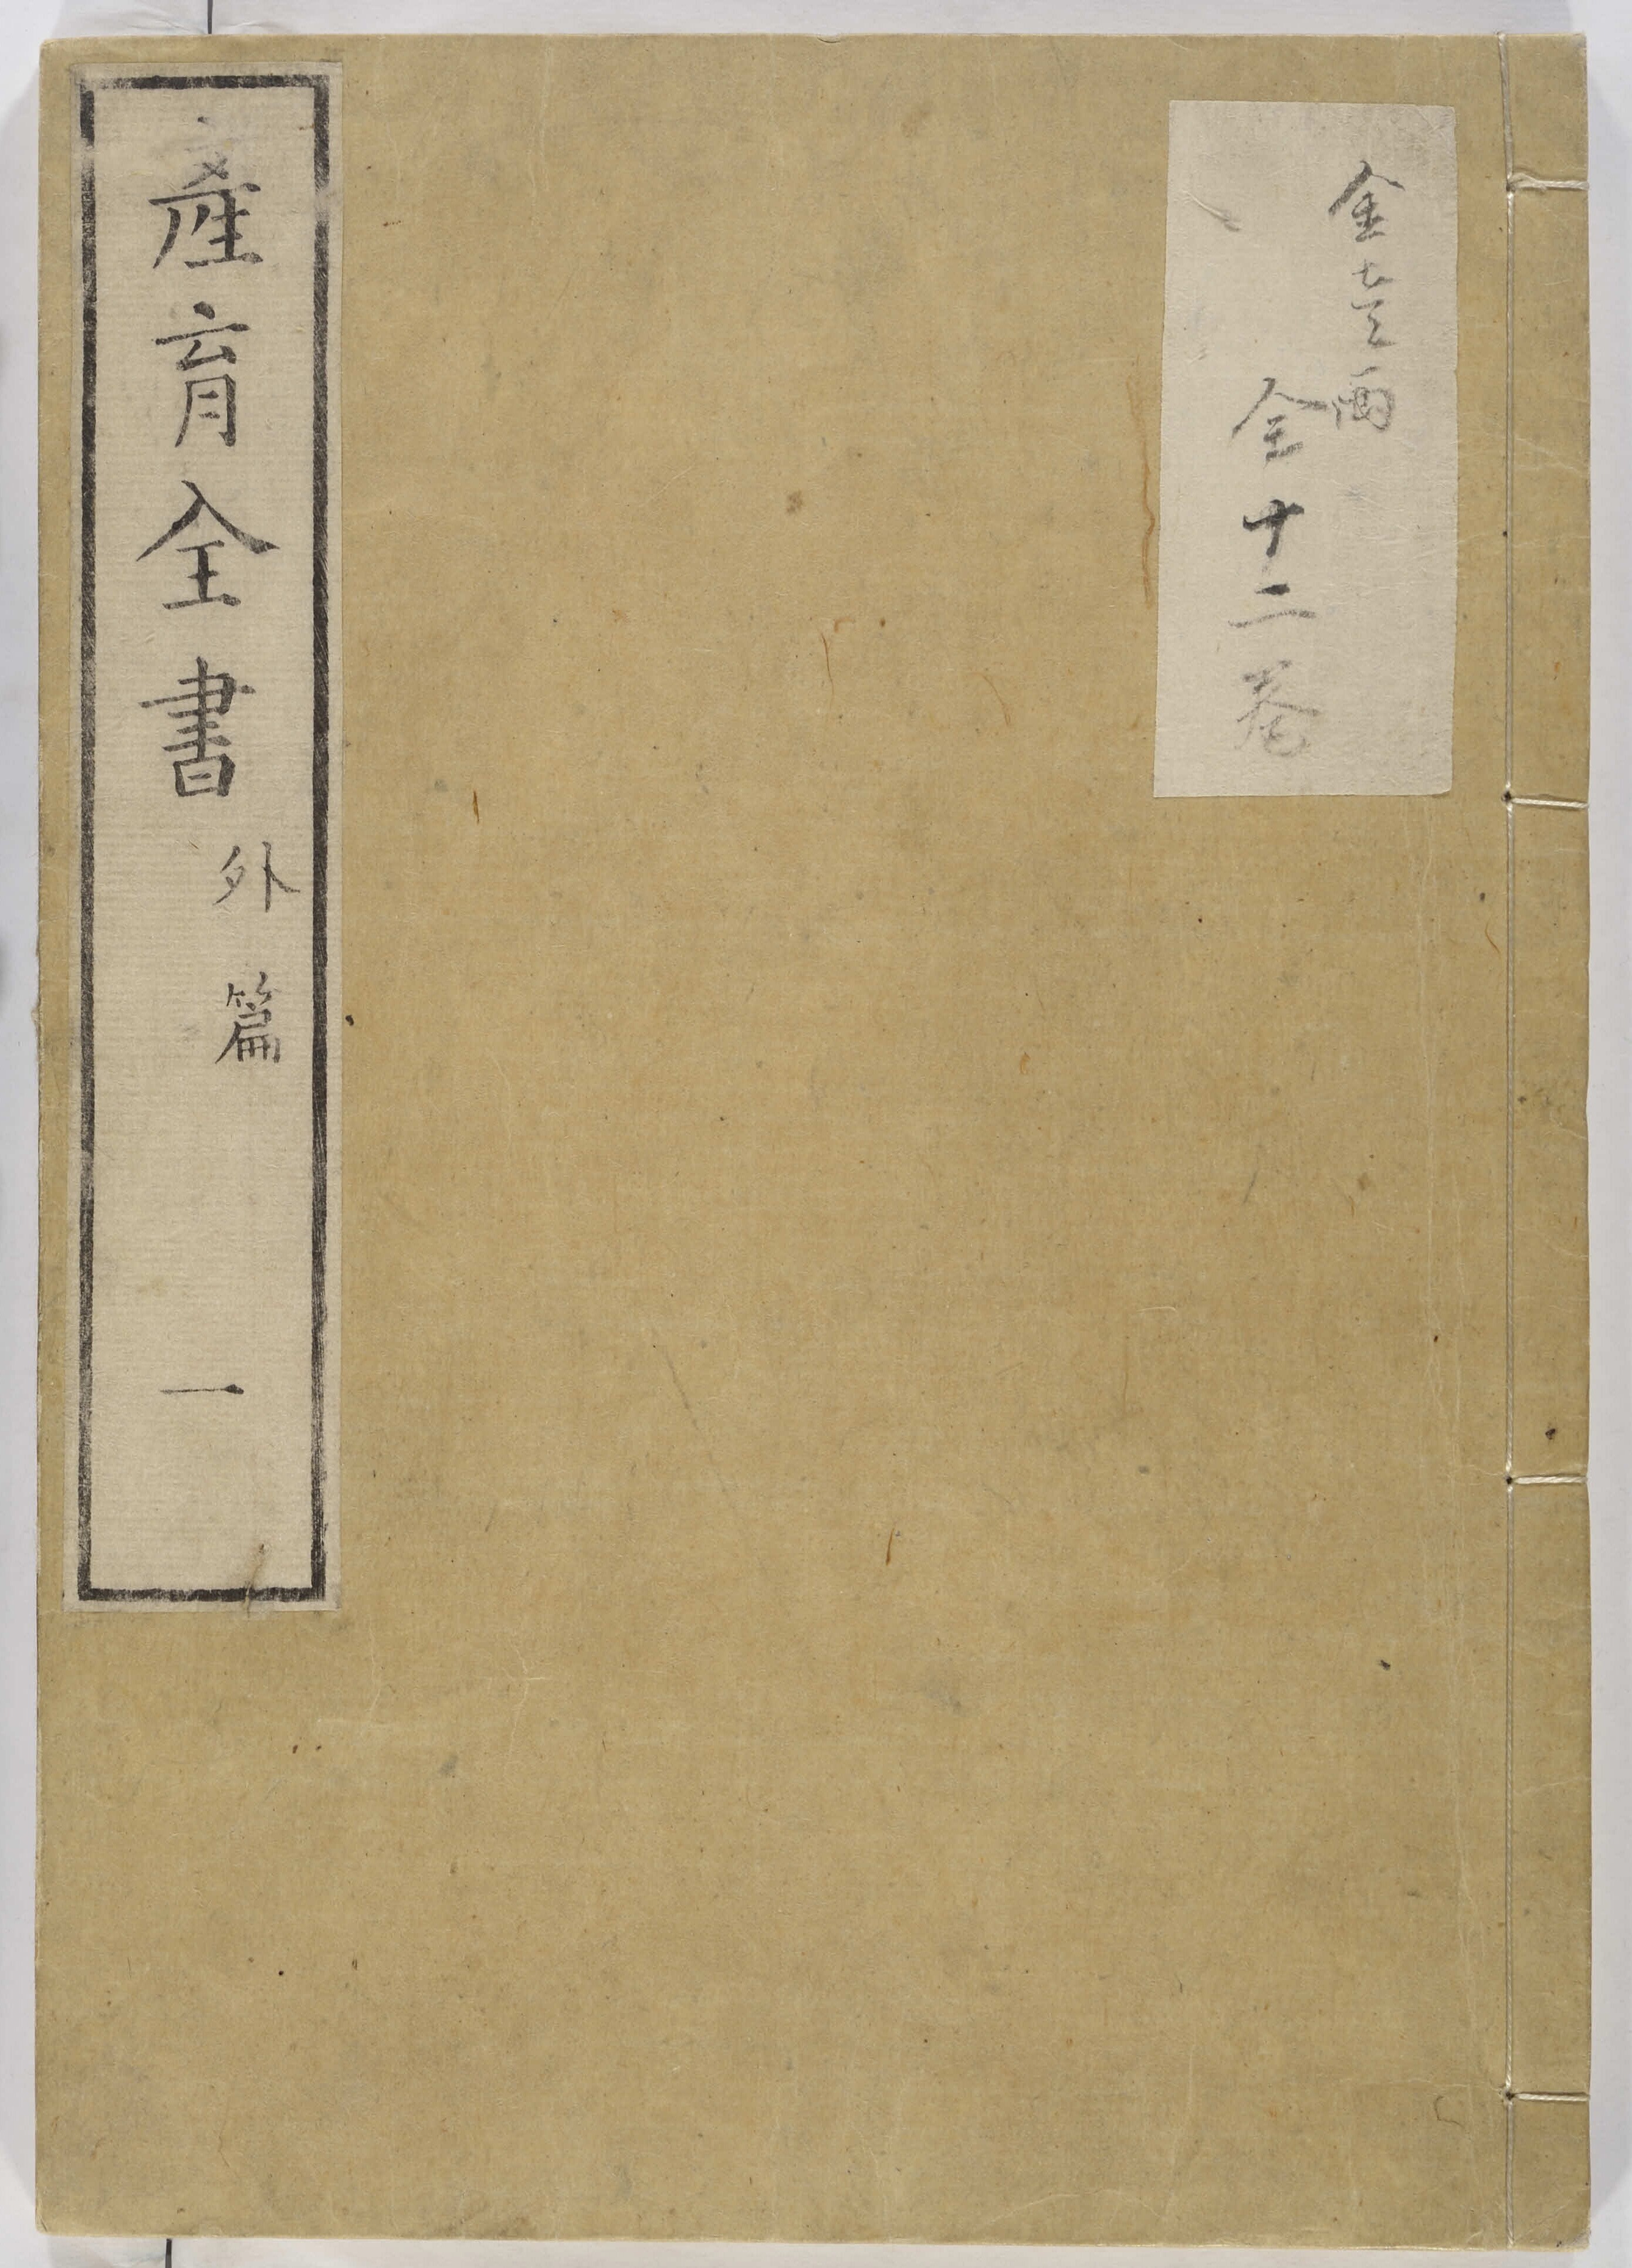 金壱両
全十二巻
産育全書 外篇 一